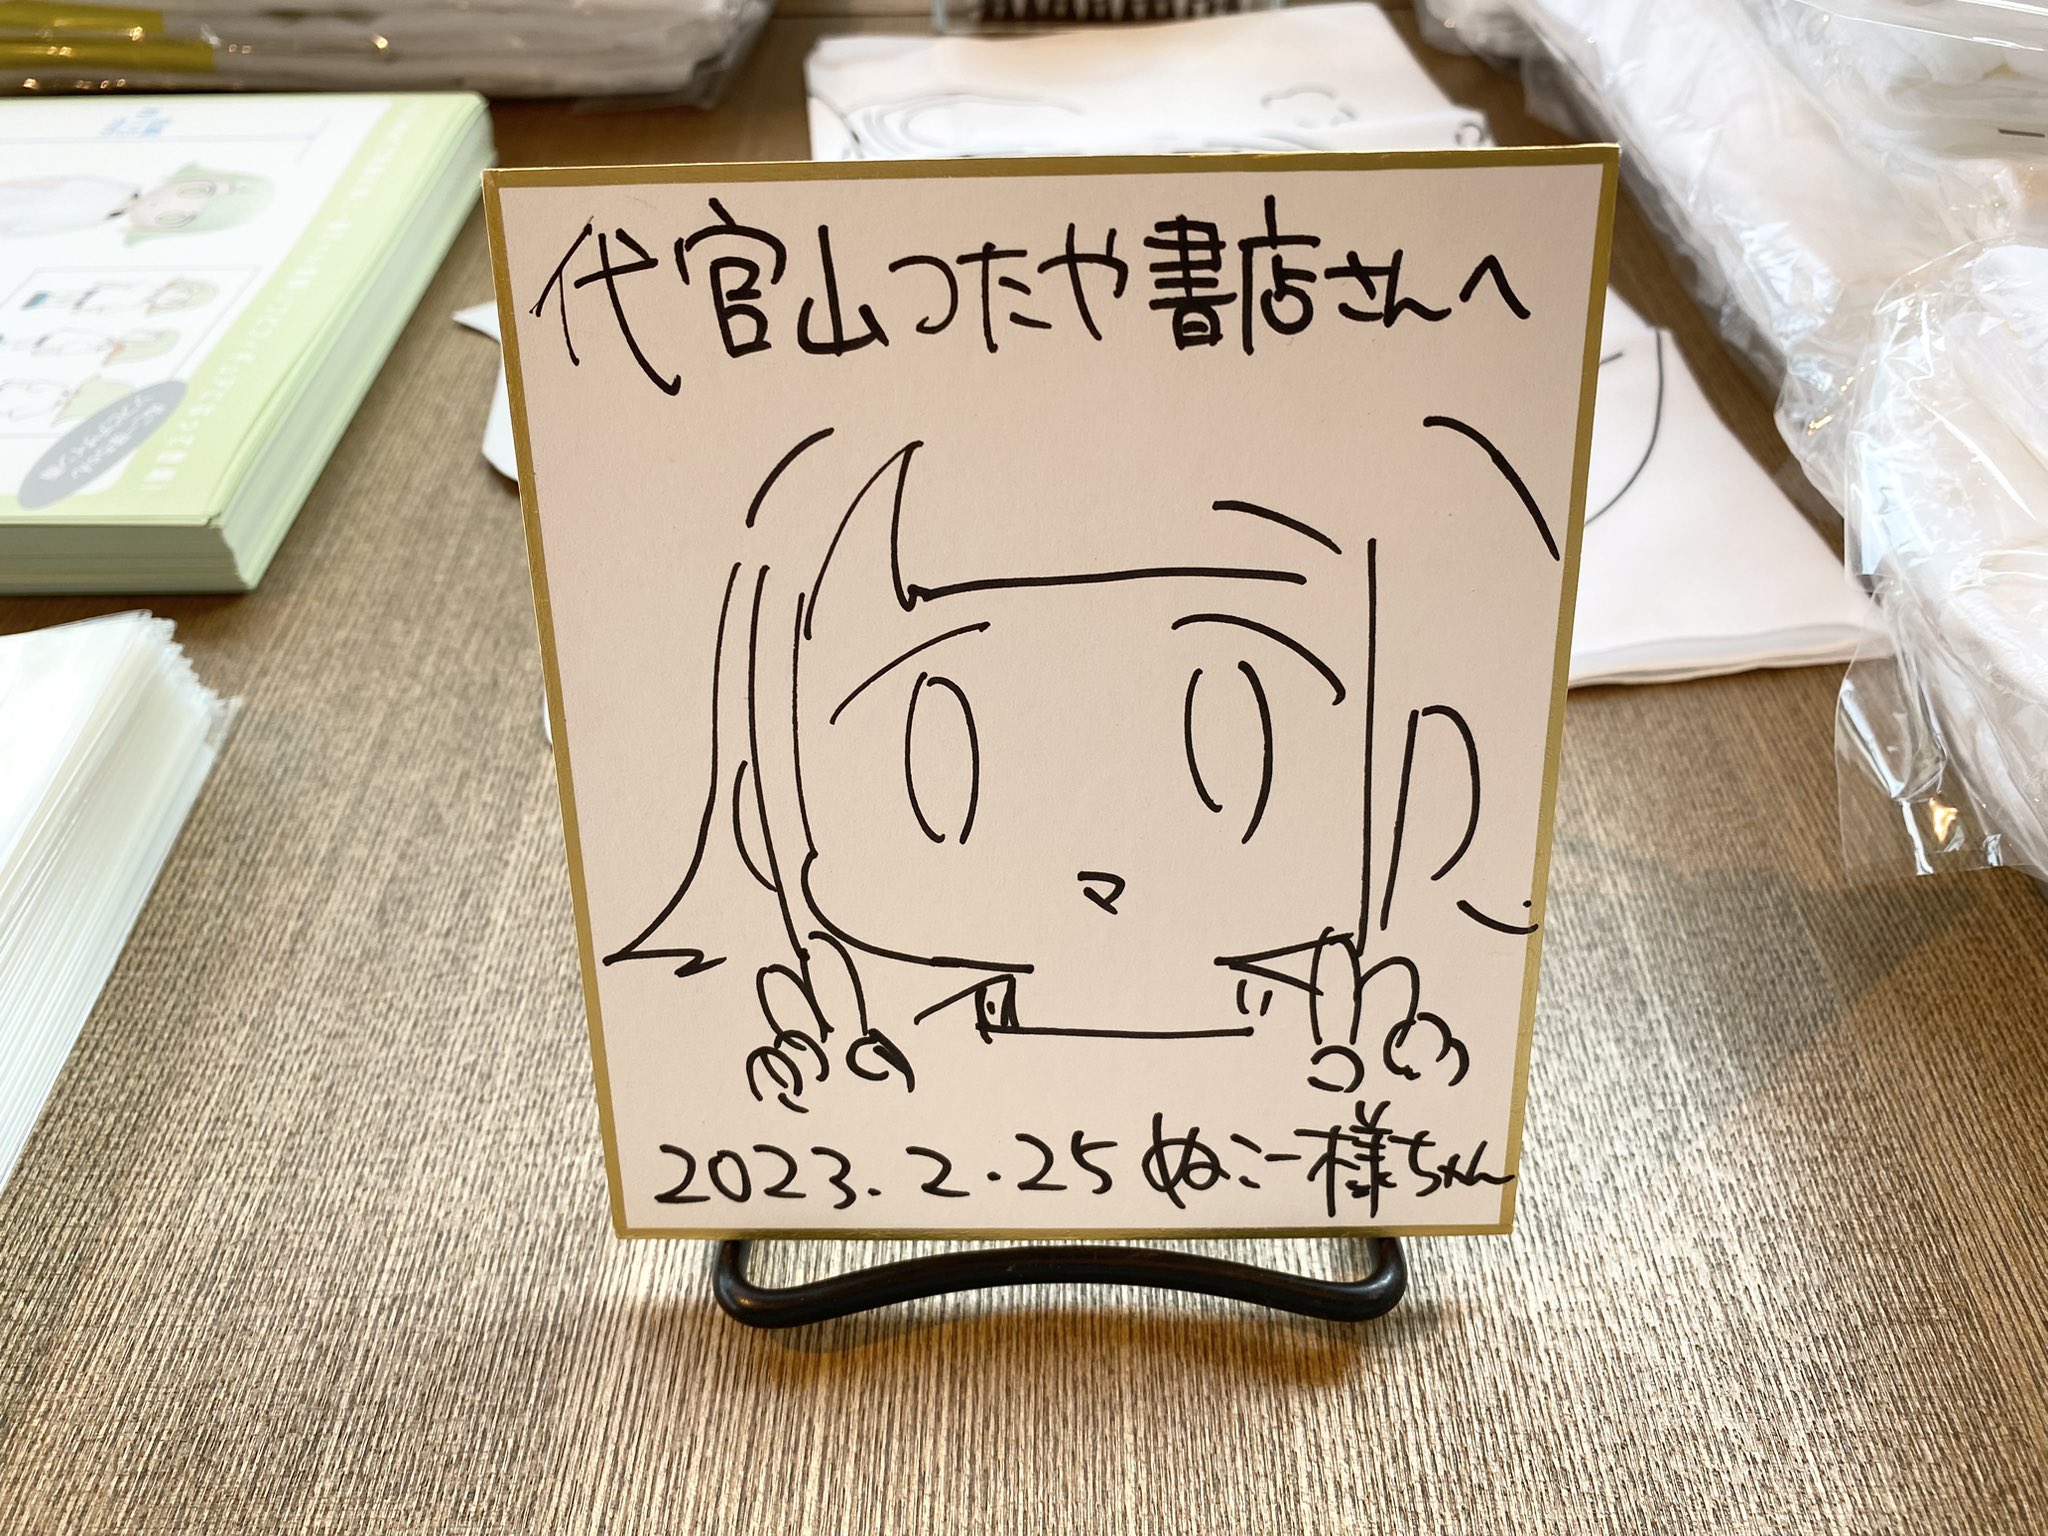 代官山つたや書店さんへ
2023.2.25 ぬこー様ちゃん